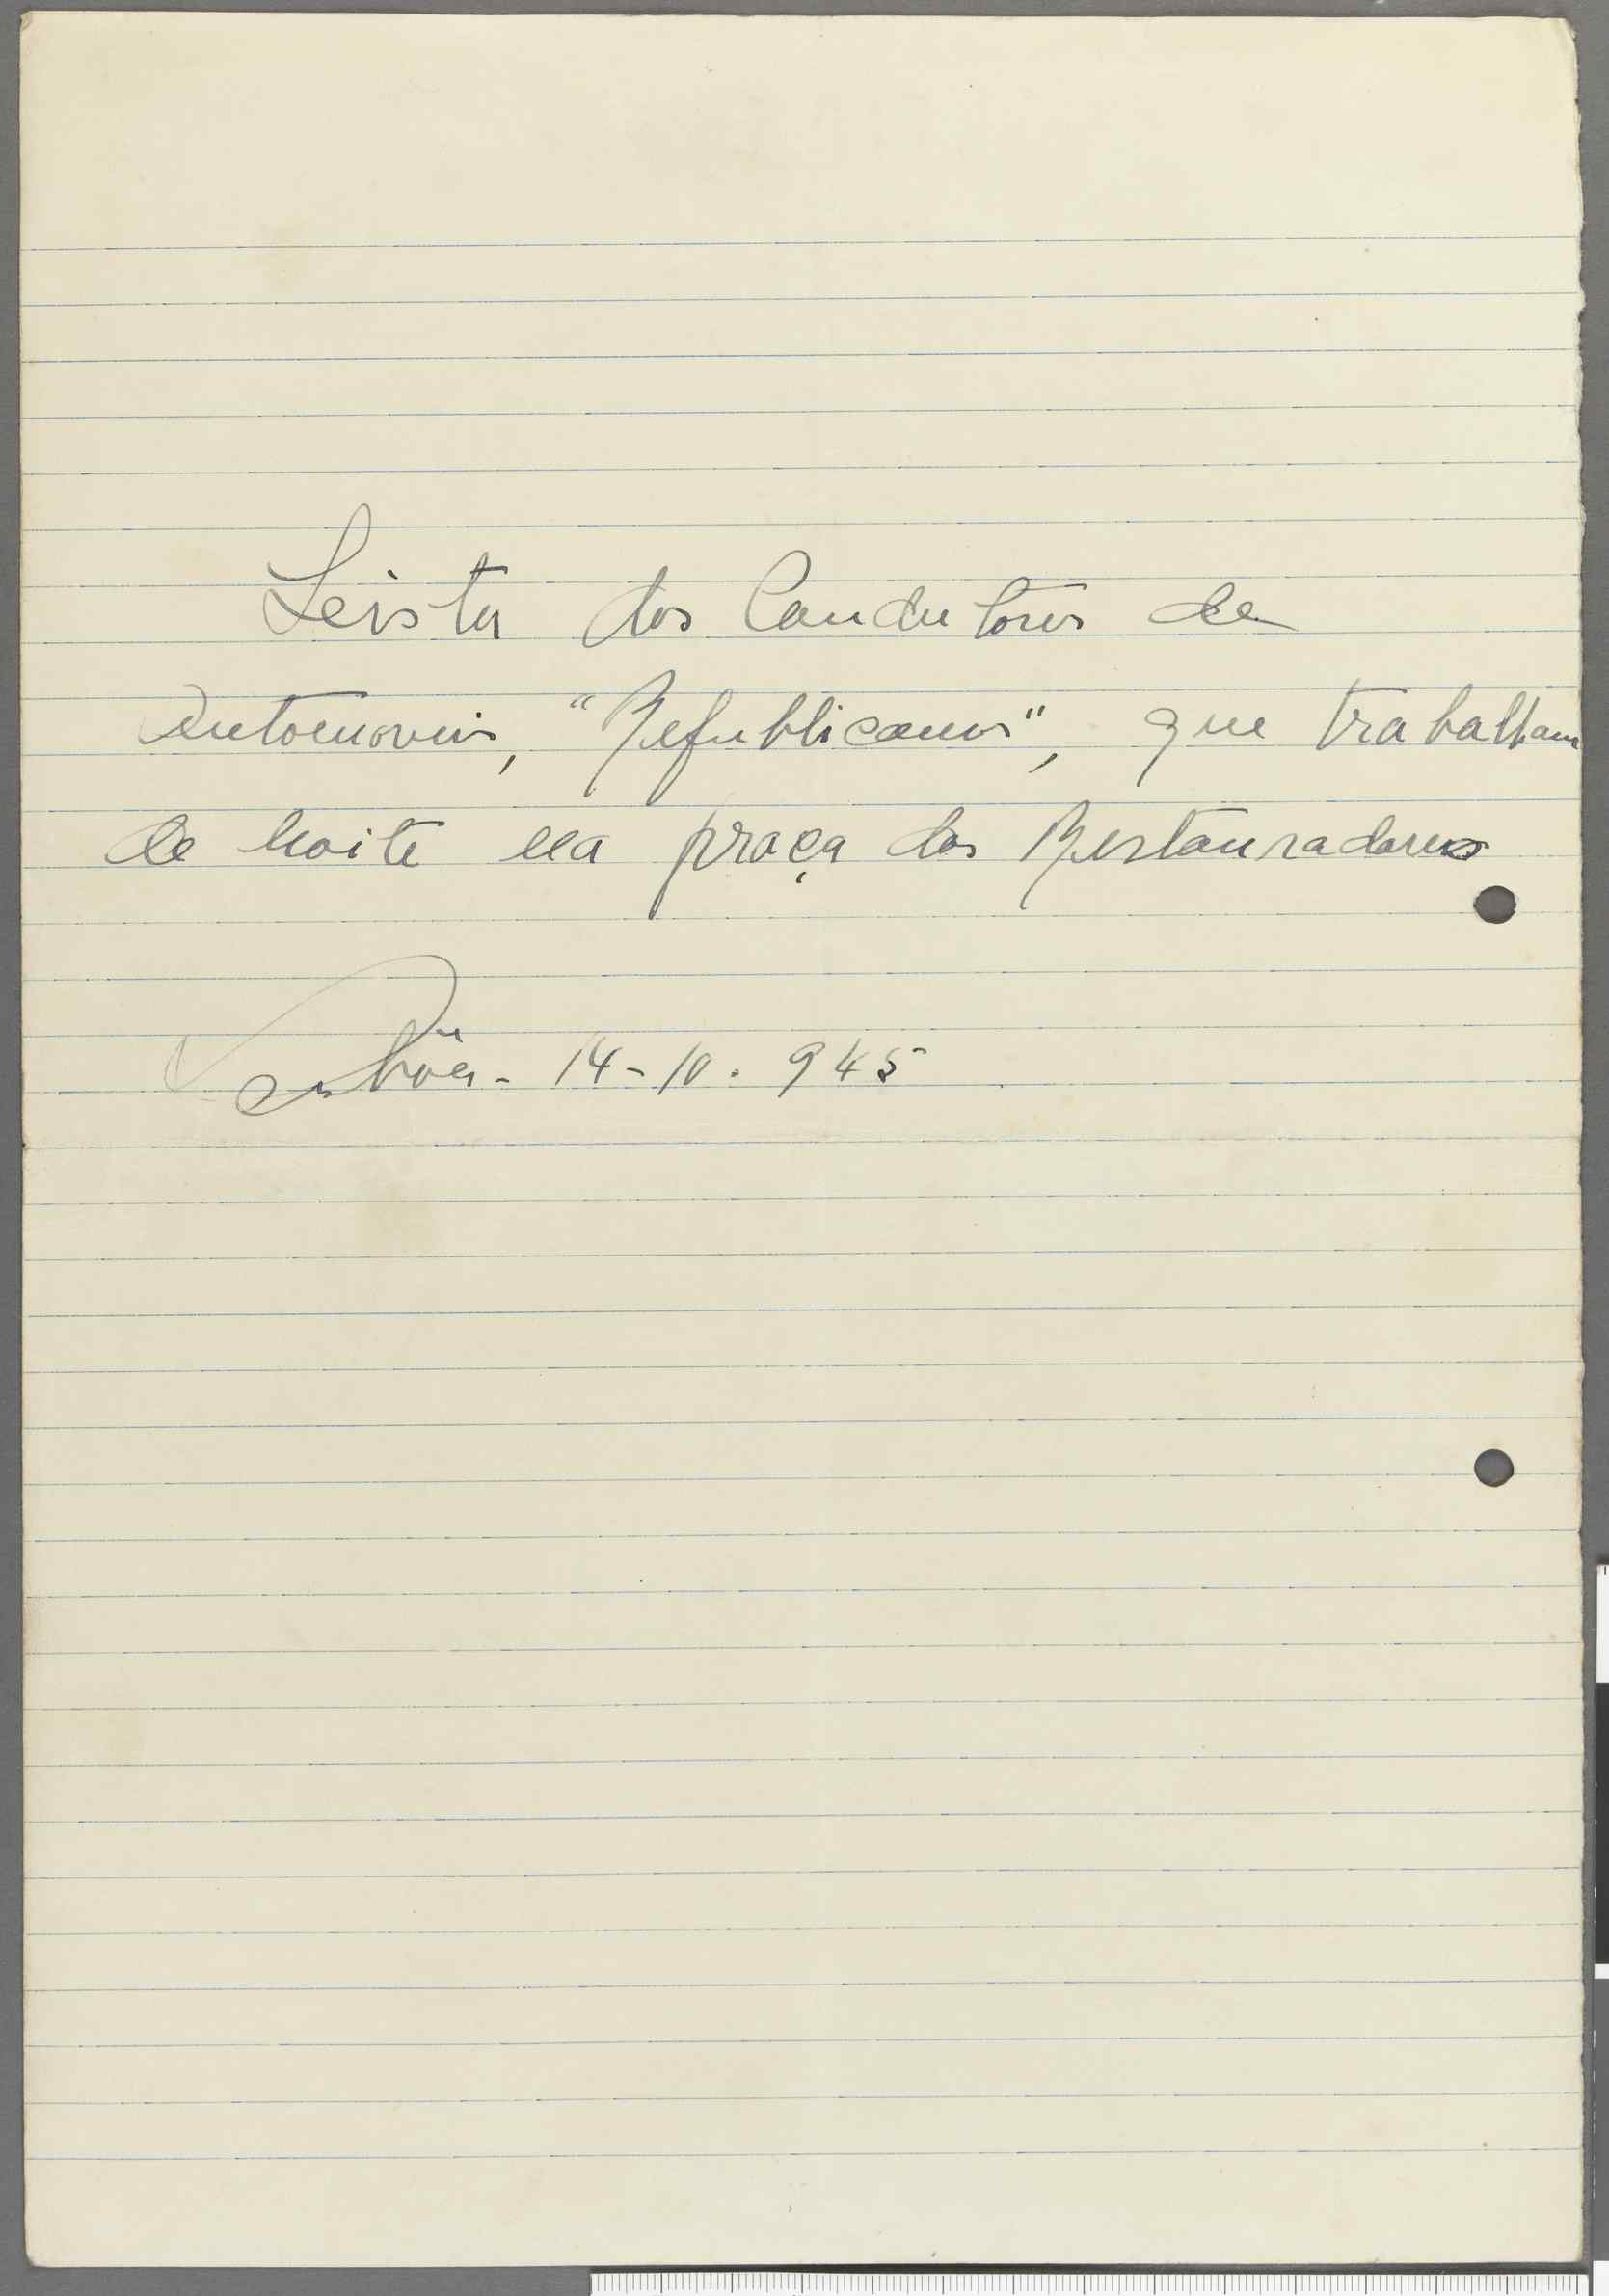 Leista dos Condutores de
Automoveis, "Republicanos", que trabalham
de noite na praça dos Restauradores
Lisbôa - 14-10-945